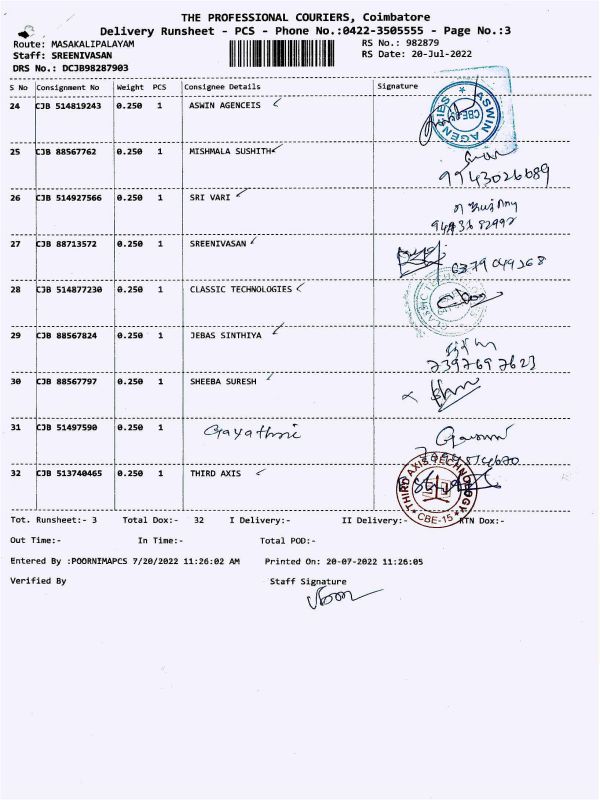 THE PROFESSIONAL COURIERS, Coimbatore
Delivery Runsheet - PCS - Phone No.:0422-3505555 - Page No.:3
Route: MASAKALIPALAYAM
RS No.: 982879
Staff: SREENIVASAN
RS Date: 20-Jul-2022
DRS No.: DCJB98287903
S No Consignment No Weight PCS Consignee Details Signature
24 CJB 514819243 0.250 1 ASWIN AGENCEIS
ASWIN AGENCIES
25 CJB 88567762 0.250 1 MISHMALA SUSHITH
9943026689
26 CJB 514927566 0.250 1 SRI VARI
27 CJB 88713572 0.250 1 SREENIVASAN
28 CJB 514877230 0.250 1 CLASSIC TECHNOLOGIES
29 CJB 88567824 0.250 1 JEBAS SINTHIYA
7397697623
30 CJB 88567797 0.250 1 SHEEBA SURESH
31 CJB 51497590 0.250 1 Gayathri
32 CJB 513740465 0.250 1 THIRD AXIS
THIRD AXIS TECHNOLOGY
CBE-15
Tot. Runsheet:- 3 Total Dox:- 32 I Delivery:- II Delivery:- RTN Dox:-
Out Time:- In Time:- Total POD:-
Entered By :POORNIMAPCS 7/20/2022 11:26:02 AM Printed On: 20-07-2022 11:26:05
Verified By Staff Signature